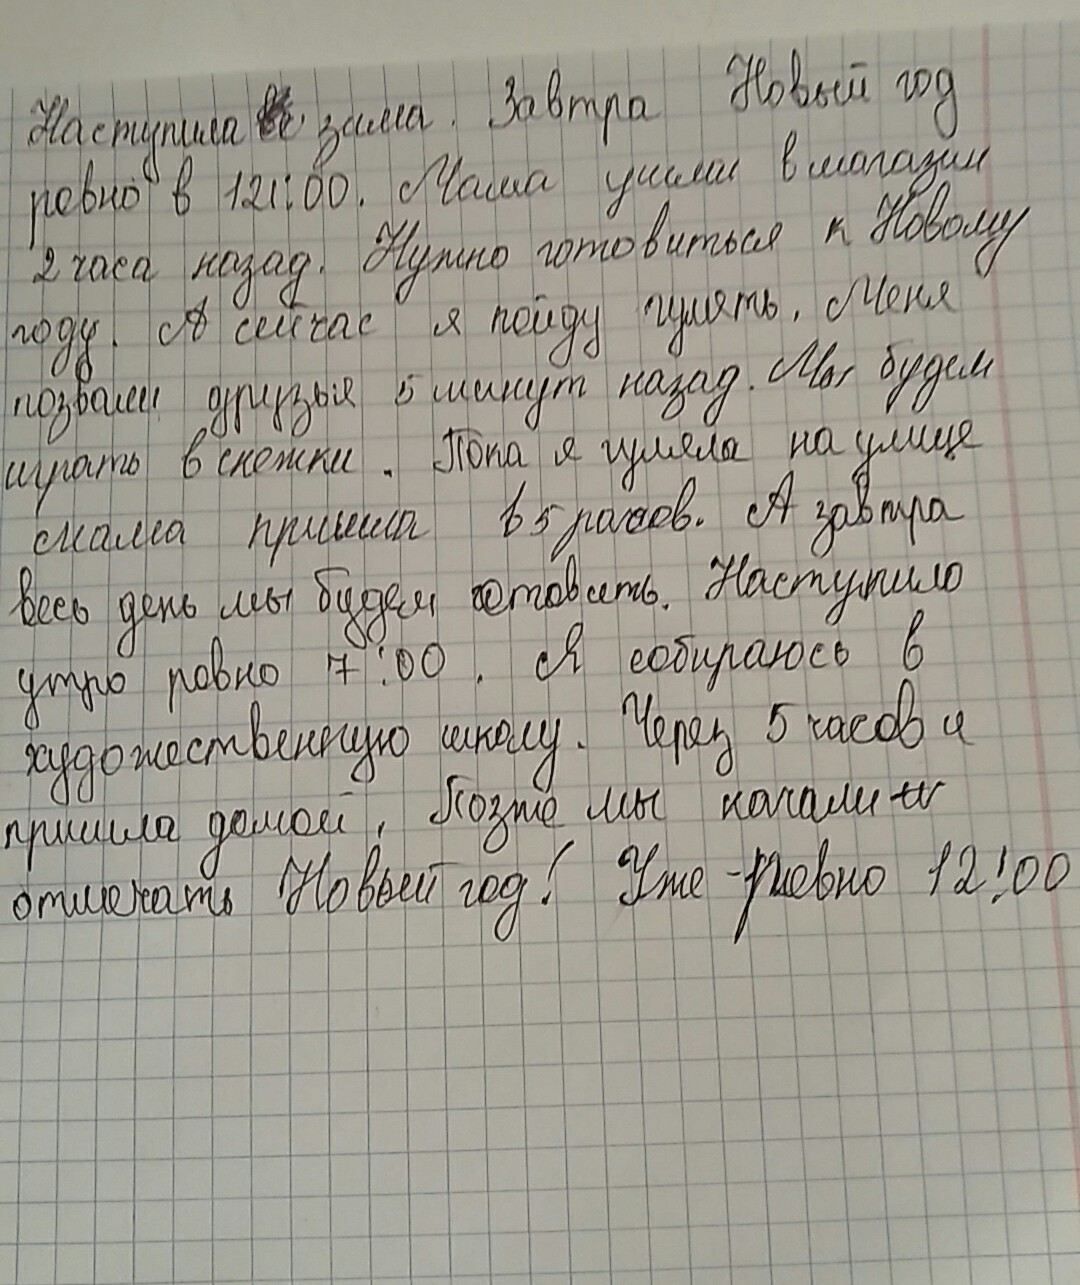 Наступила зима. Завтра Новый год
ровно в 12:00. Мама ушла в магазин
2 часа назад. Нужно готовиться к Новому
году. А сейчас я пойду гулять. Меня
позвали друзья 5 минут назад. Мы будем
играть в снежки. Пока я гуляла на улице
мама пришла в 5 часов. А завтра
весь день мы будем готовить. Наступило
утро ровно 7:00. Я собираюсь в
художественную школу. Через 5 часов я
пришла домой. Позже мы начали
отмечать Новый год! Уже ровно 12:00